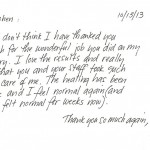 10/15/13
I don't think I have thanked you
for the wonderful job you did on my
I love the results and really
that you and your staff took such
care of me. The healing has been
and I feel normal again (and
felt normal for weeks now).
Thank you so much again,